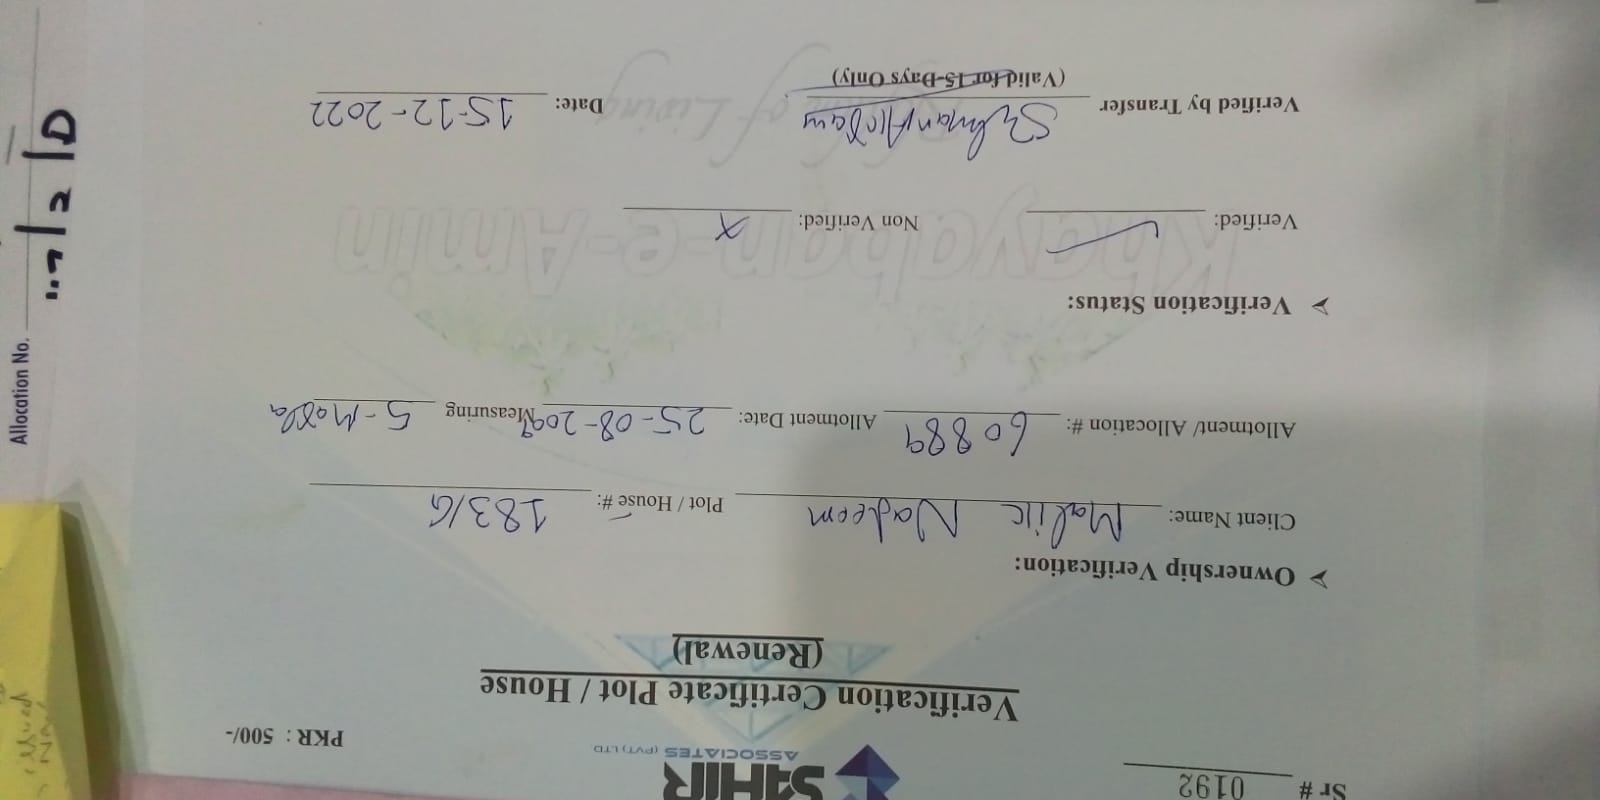 Sr # 0192
SAHIR
ASSOCIATES (PVT) LTD
PKR : 500/-
Verification Certificate Plot / House
(Renewal)
➤ Ownership Verification:
Client Name: Malik Nadeem Plot / House #: 183/G
Allotment/ Allocation #: 60889 Allotment Date: 25-08-2009 Measuring 5-Marla
➤ Verification Status:
Khayaban-e-Amin
Verified: ✓ Non Verified: x
of Living
Verified by Transfer Date: 15-12-2022
(Valid for 15-Days Only)
Allocation No.